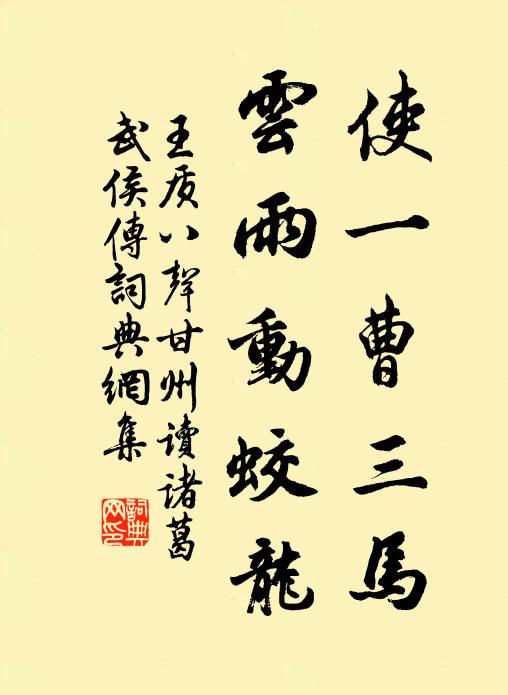 使一曹三馬
雲雨動蛟龍
王质八聲甘州讀諸葛
武侯傳詞典網集
詞典
网印